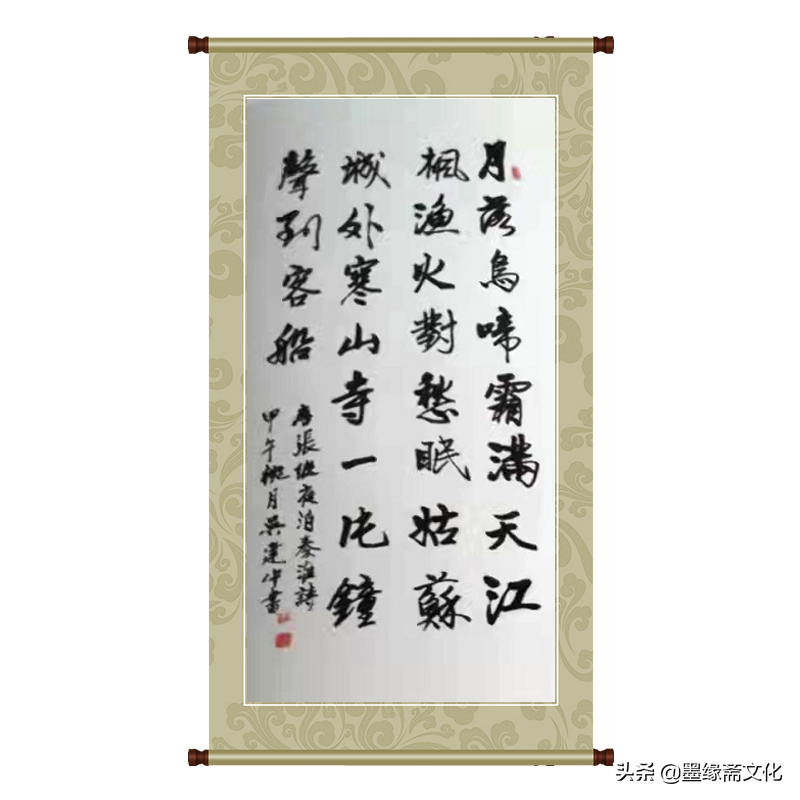 月落烏啼霜滿天江
楓漁火對愁眠姑蘇
城外寒山寺一片鐘
聲到客船
唐張继夜泊秦淮詩
甲午桃月吴建中書
头条 @墨缘斋文化